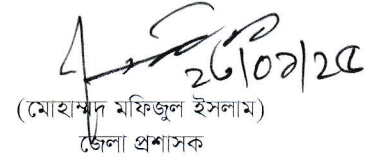 ২৬|০৯|২৫
(মোহাম্মদ মফিজুল ইসলাম)
জেলা প্রশাসক